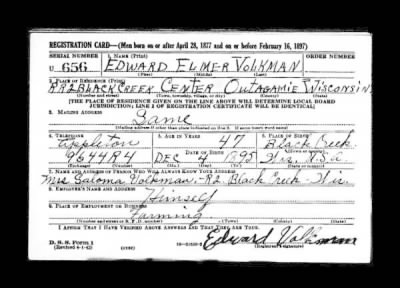 REGISTRATION CARD—(Men born on or after April 28, 1877 and on or before February 16, 1897)
SERIAL NUMBER 1. NAME (Print) ORDER NUMBER
U 656 EDWARD ELMER VOLKMAN
(First) (Middle) (Last)
2. PLACE OF RESIDENCE (Print)
RR2 BLACK CREEK CENTER OUTAGAMIE WISCONSIN
(Number and street) (Town, township, village, or city) (County) (State)
[THE PLACE OF RESIDENCE GIVEN ON THE LINE ABOVE WILL DETERMINE LOCAL BOARD
JURISDICTION; LINE 2 OF REGISTRATION CERTIFICATE WILL BE IDENTICAL]
3. MAILING ADDRESS
Same
[Mailing address if other than place indicated on line 2. If same insert word same]
4. TELEPHONE 5. AGE IN YEARS 6. PLACE OF BIRTH
Appleton 47 Black Creek
DATE OF BIRTH (Town or county)
9654R4 DEC 4 1895 Wis. U.S.A.
(Exchange) (Number) (Mo.) (Day) (Yr.) (State or country)
7. NAME AND ADDRESS OF PERSON WHO WILL ALWAYS KNOW YOUR ADDRESS
Mrs Saloma Volkman - R2 Black Creek - Wis.
8. EMPLOYER'S NAME AND ADDRESS
Himself
9. PLACE OF EMPLOYMENT OR BUSINESS
Farming
(Number and street or R. F. D. number) (Town) (County) (State)
I AFFIRM THAT I HAVE VERIFIED ABOVE ANSWERS AND THAT THEY ARE TRUE.
D. S. S. Form 1 Edward Volkman
(Revised 4-1-42) (over) (Registrant's signature)